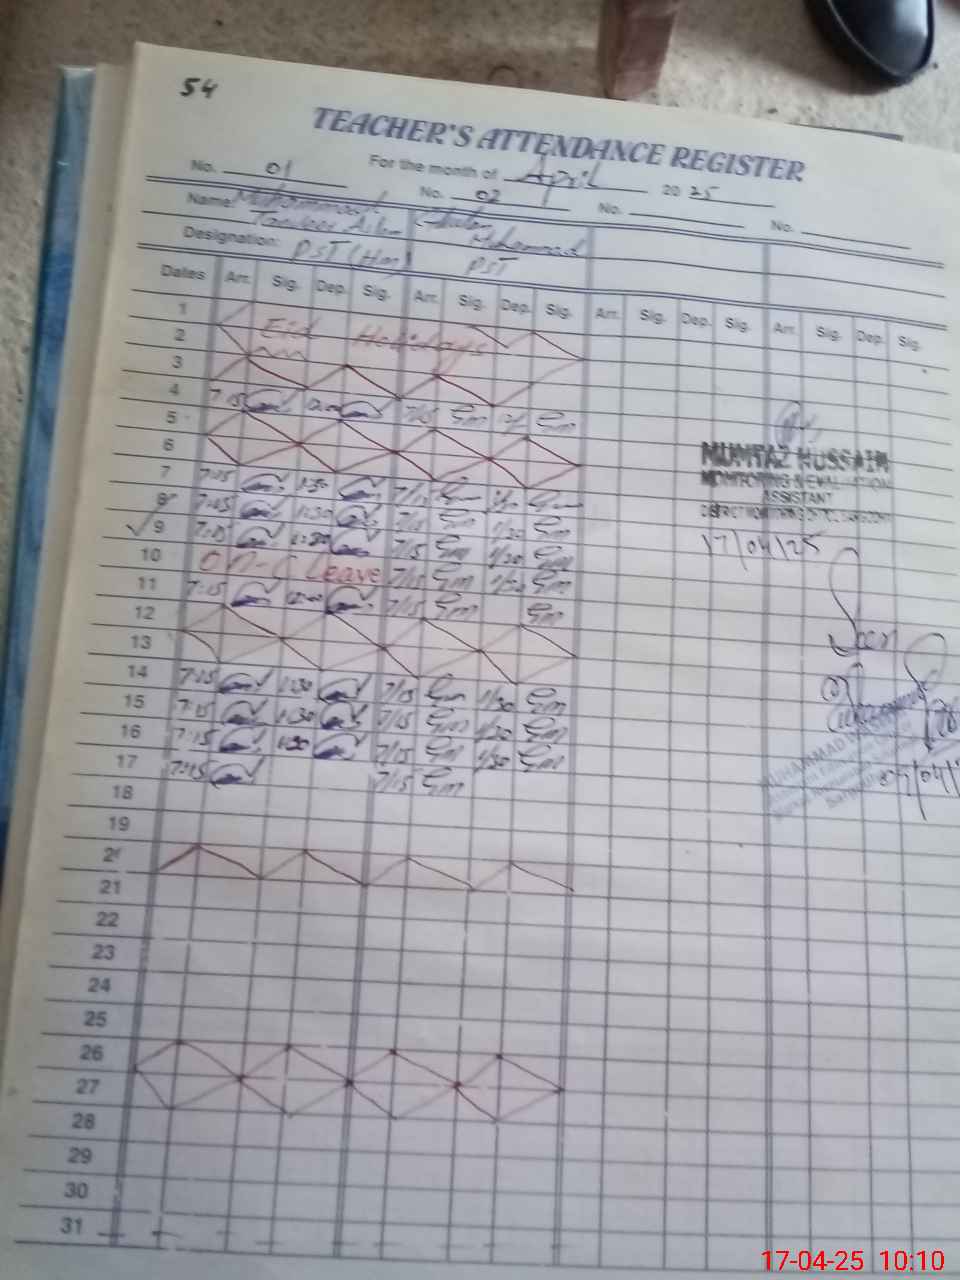 54
TEACHER'S ATTENDANCE REGISTER
No. 01 For the month of April 2025
No. 02 No. No.
Name: Muhammad Ghulam
Muhammad
Designation: PST (Hm) PST
Dates Arr. Sig. Dep. Sig. Arr. Sig. Dep. Sig. Arr. Sig. Dep. Sig. Arr. Sig. Dep. Sig.
1
2 Eid Holidays
3
4 7:15 12:00 7/15
5
6
7 7:15 1:30 7/15
8 7:15 1:30 7/15 1/30
9 7:15 1:30 7/15 1/30
10 On C Leave 7/15 1/30
11 7:15 12:00 7/15
12
13
14 7:15 1:30 7/15 1/30
15 7:15 1:30 7/15 1/30
16 7:15 1:30 7/15 1/30
17 7:15 7/15
18
19
21
22
23
24
25
26
27
28
29
30
31
MUMTAZ HUSSAIN
MONITORING & EVALUATION
ASSISTANT
17/04/25
Seen
MUHAMMAD
17-04-25 10:10